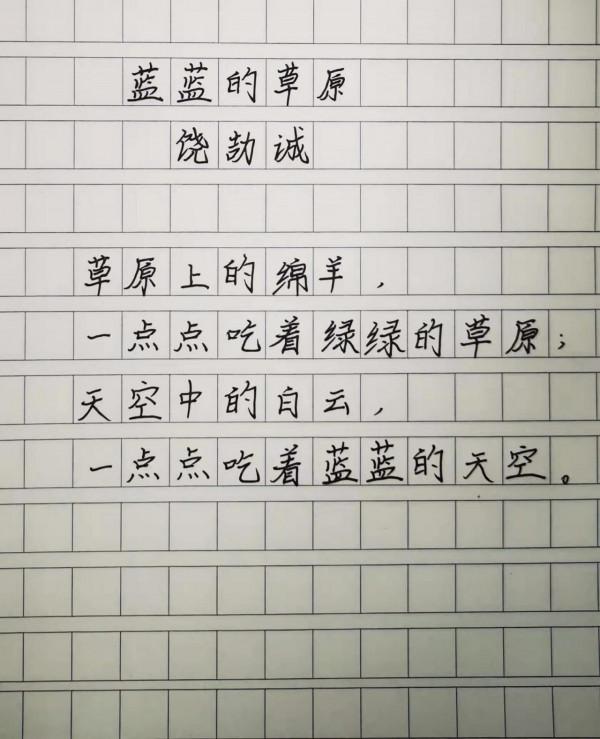 蓝蓝的草原
饶劼诚
草原上的绵羊，
一点点吃着绿绿的草原；
天空中的白云，
一点点吃着蓝蓝的天空。